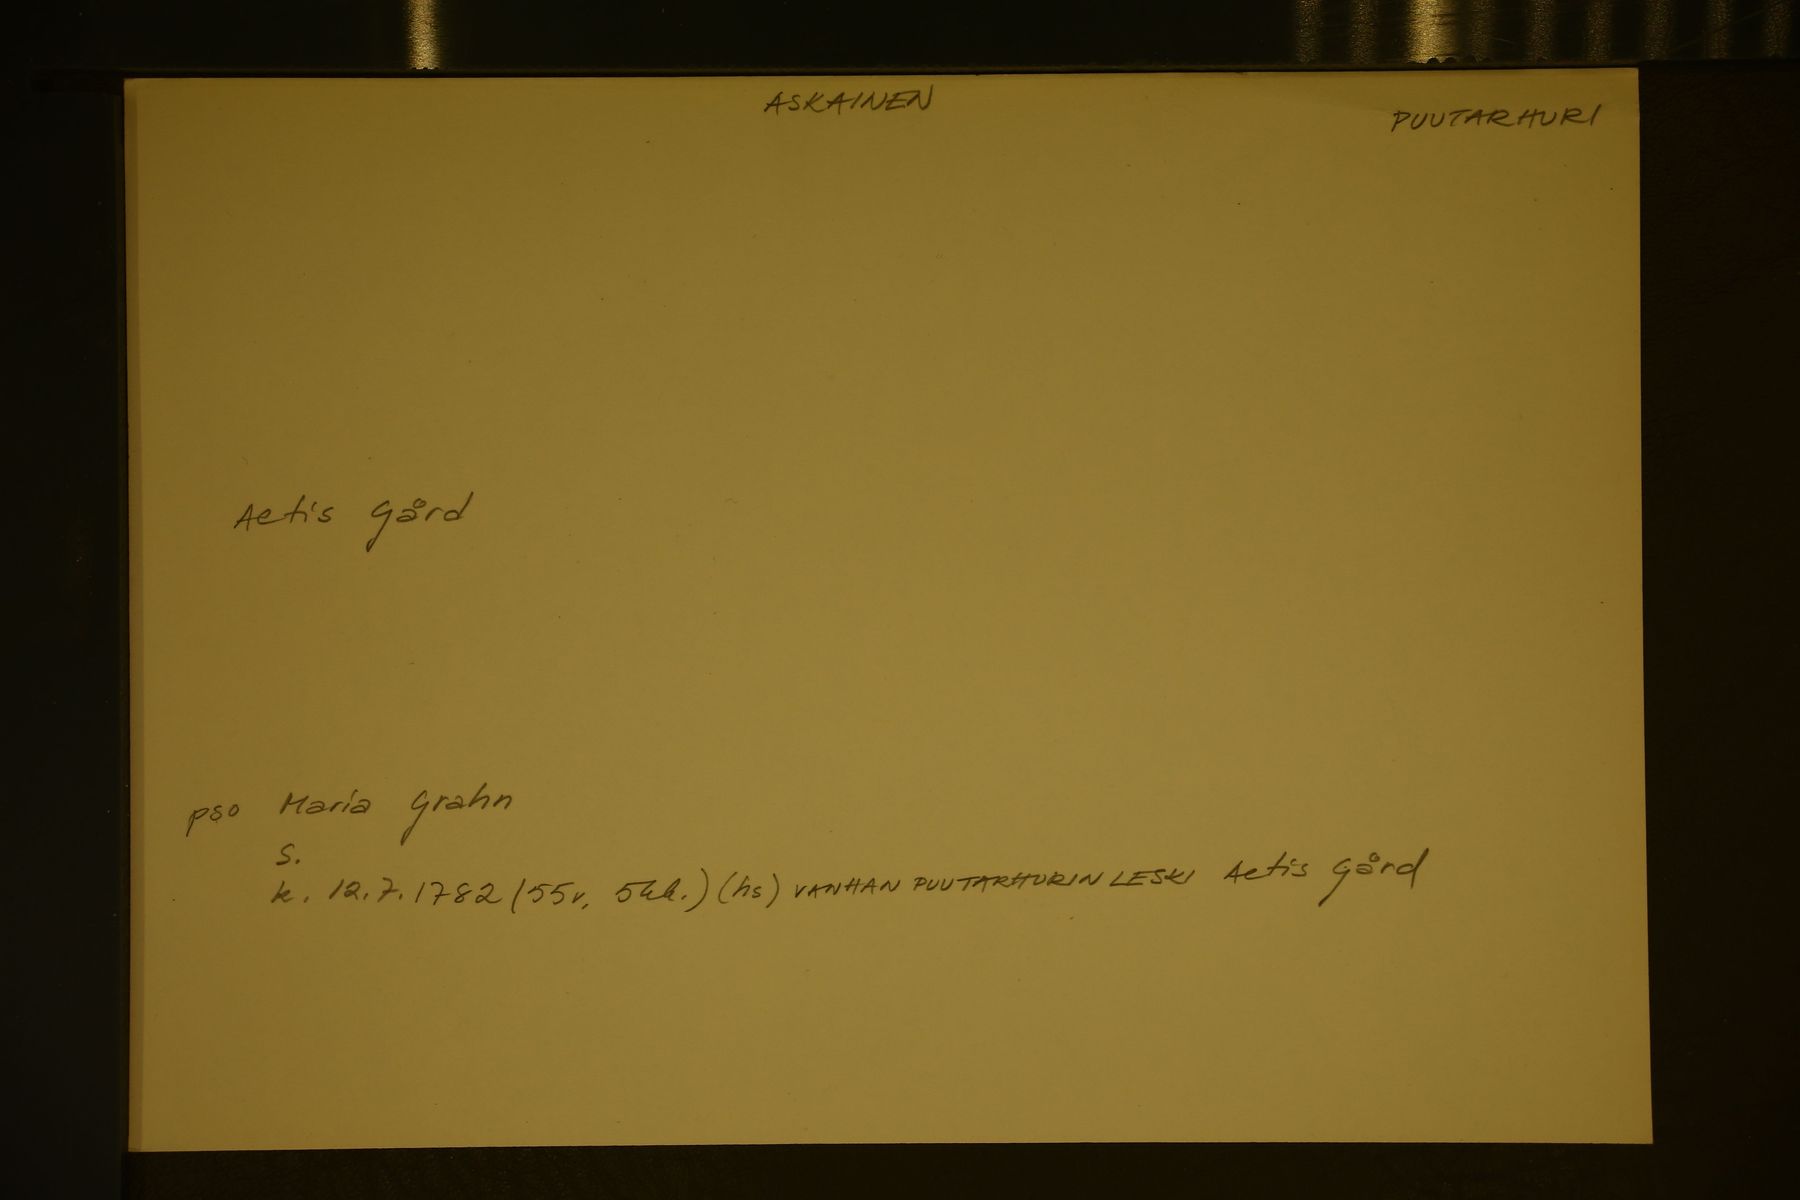 ASKAINEN
PUUTARHURI
Aetis Gård
pso Maria Grahn
s.
k. 12.7.1782 (55v, 5kk.) (hs) VANHAN PUUTARHURIN LESKI Aetis Gård